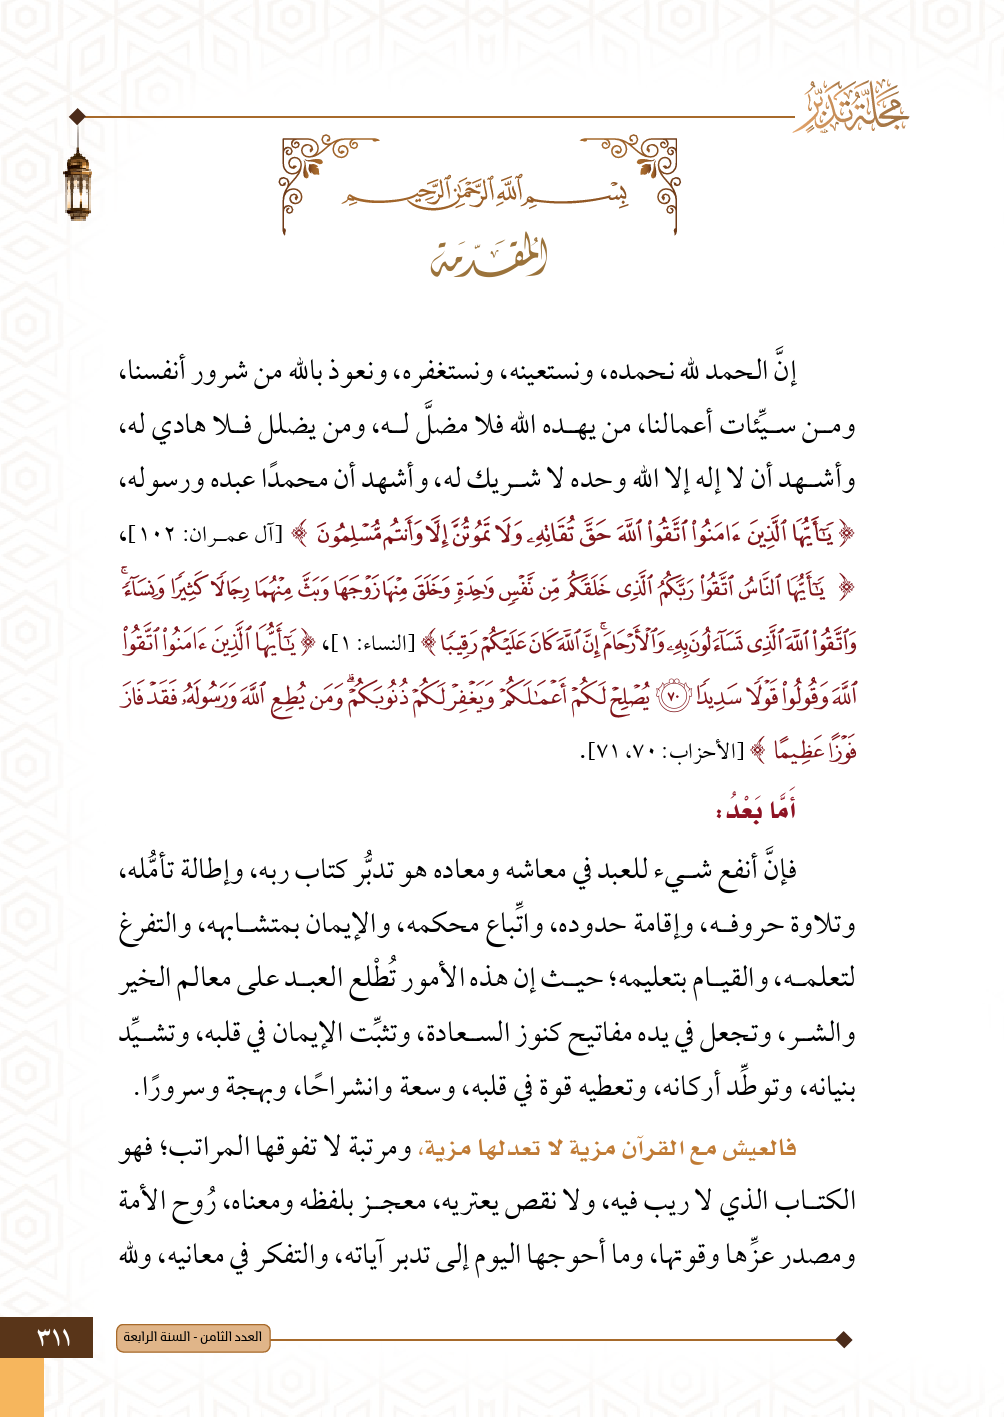 مجلة تدبر
بِسْمِ ٱللَّهِ ٱلرَّحْمَٰنِ ٱلرَّحِيمِ
المُقَدّمَة
إنَّ الحمد لله نحمده، ونستعينه، ونستغفره، ونعوذ بالله من شرور أنفسنا،
ومن سيِّئات أعمالنا، من يهده الله فلا مضلَّ له، ومن يضلل فلا هادي له،
وأشهد أن لا إله إلا الله وحده لا شريك له، وأشهد أن محمدًا عبده ورسوله،
﴿ يَـٰٓأَيُّهَا ٱلَّذِينَ ءَامَنُوا۟ ٱتَّقُوا۟ ٱللَّهَ حَقَّ تُقَاتِهِۦ وَلَا تَمُوتُنَّ إِلَّا وَأَنتُم مُّسْلِمُونَ ﴾ [آل عمران: ١٠٢]،
﴿ يَـٰٓأَيُّهَا ٱلنَّاسُ ٱتَّقُوا۟ رَبَّكُمُ ٱلَّذِى خَلَقَكُم مِّن نَّفْسٍ وَٰحِدَةٍ وَخَلَقَ مِنْهَا زَوْجَهَا وَبَثَّ مِنْهُمَا رِجَالًا كَثِيرًا وَنِسَآءً ۚ
وَٱتَّقُوا۟ ٱللَّهَ ٱلَّذِى تَسَآءَلُونَ بِهِۦ وَٱلْأَرْحَامَ ۚ إِنَّ ٱللَّهَ كَانَ عَلَيْكُمْ رَقِيبًا ﴾ [النساء: ١]، ﴿ يَـٰٓأَيُّهَا ٱلَّذِينَ ءَامَنُوا۟ ٱتَّقُوا۟
ٱللَّهَ وَقُولُوا۟ قَوْلًا سَدِيدًا ٧٠ يُصْلِحْ لَكُمْ أَعْمَـٰلَكُمْ وَيَغْفِرْ لَكُمْ ذُنُوبَكُمْ ۗ وَمَن يُطِعِ ٱللَّهَ وَرَسُولَهُۥ فَقَدْ فَازَ
فَوْزًا عَظِيمًا ﴾ [الأحزاب: ٧٠، ٧١].
أَمَّا بَعْدُ:
فإنَّ أنفع شيء للعبد في معاشه ومعاده هو تدبُّر كتاب ربه، وإطالة تأمُّله،
وتلاوة حروفه، وإقامة حدوده، واتِّباع محكمه، والإيمان بمتشابهه، والتفرغ
لتعلمه، والقيام بتعليمه؛ حيث إن هذه الأمور تُطْلع العبد على معالم الخير
والشر، وتجعل في يده مفاتيح كنوز السعادة، وتثبِّت الإيمان في قلبه، وتشيِّد
بنيانه، وتوطِّد أركانه، وتعطيه قوة في قلبه، وسعة وانشراحًا، وبهجة وسرورًا.
فالعيش مع القرآن مزية لا تعدلها مزية، ومرتبة لا تفوقها المراتب؛ فهو
الكتاب الذي لا ريب فيه، ولا نقص يعتريه، معجز بلفظه ومعناه، رُوح الأمة
ومصدر عزِّها وقوتها، وما أحوجها اليوم إلى تدبر آياته، والتفكر في معانيه، ولله
العدد الثامن - السنة الرابعة
٣١١